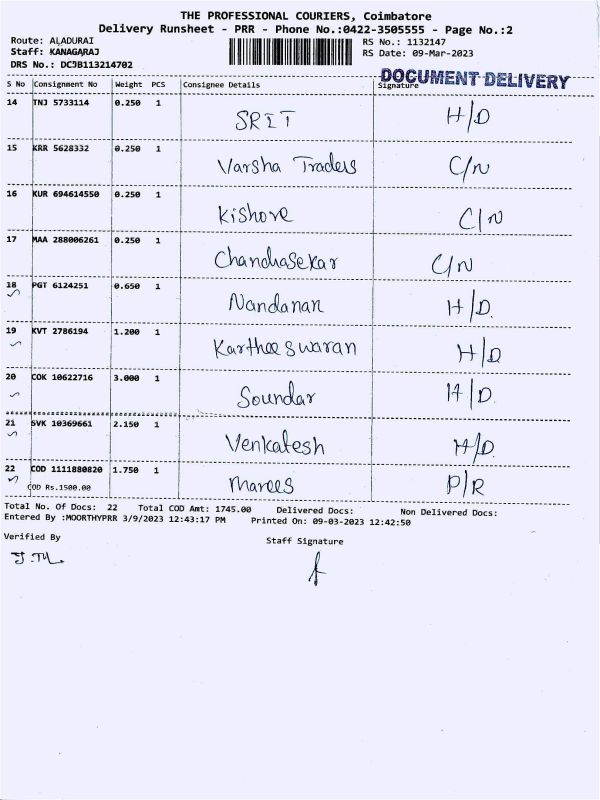 THE PROFESSIONAL COURIERS, Coimbatore
Delivery Runsheet - PRR - Phone No.:0422-3505555 - Page No.:2
Route: ALADURAI
RS No.: 1132147
Staff: KANAGARAJ
RS Date: 09-Mar-2023
DRS No.: DCJB113214702
DOCUMENT DELIVERY
S No Consignment No Weight PCS Consignee Details Signature
14 TNJ 5733114 0.250 1 SRIT H/D
15 KRR 5628332 0.250 1 Varsha Traders C/N
16 KUR 694614550 0.250 1 Kishore C/N
17 MAA 288006261 0.250 1 Chandrasekar C/N
18 PGT 6124251 0.650 1 Nandanan H/D.
19 KVT 2786194 1.200 1 Kartheeswaran H/D
20 COK 10622716 3.000 1 Soundar H/D.
21 SVK 10369661 2.150 1 Venkatesh H/D.
22 COD 1111880820 1.750 1 Marees P/R
COD Rs.1500.00
Total No. Of Docs: 22 Total COD Amt: 1745.00 Delivered Docs: Non Delivered Docs:
Entered By :MOORTHYPRR 3/9/2023 12:43:17 PM Printed On: 09-03-2023 12:42:50
Verified By
Staff Signature